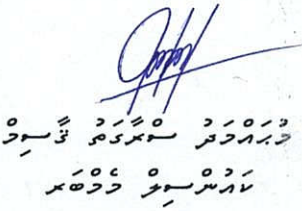 މުޙައްމަދު ސްރާގަތު ޤާސިމް
ކައުންސިލް މެމްބަރ